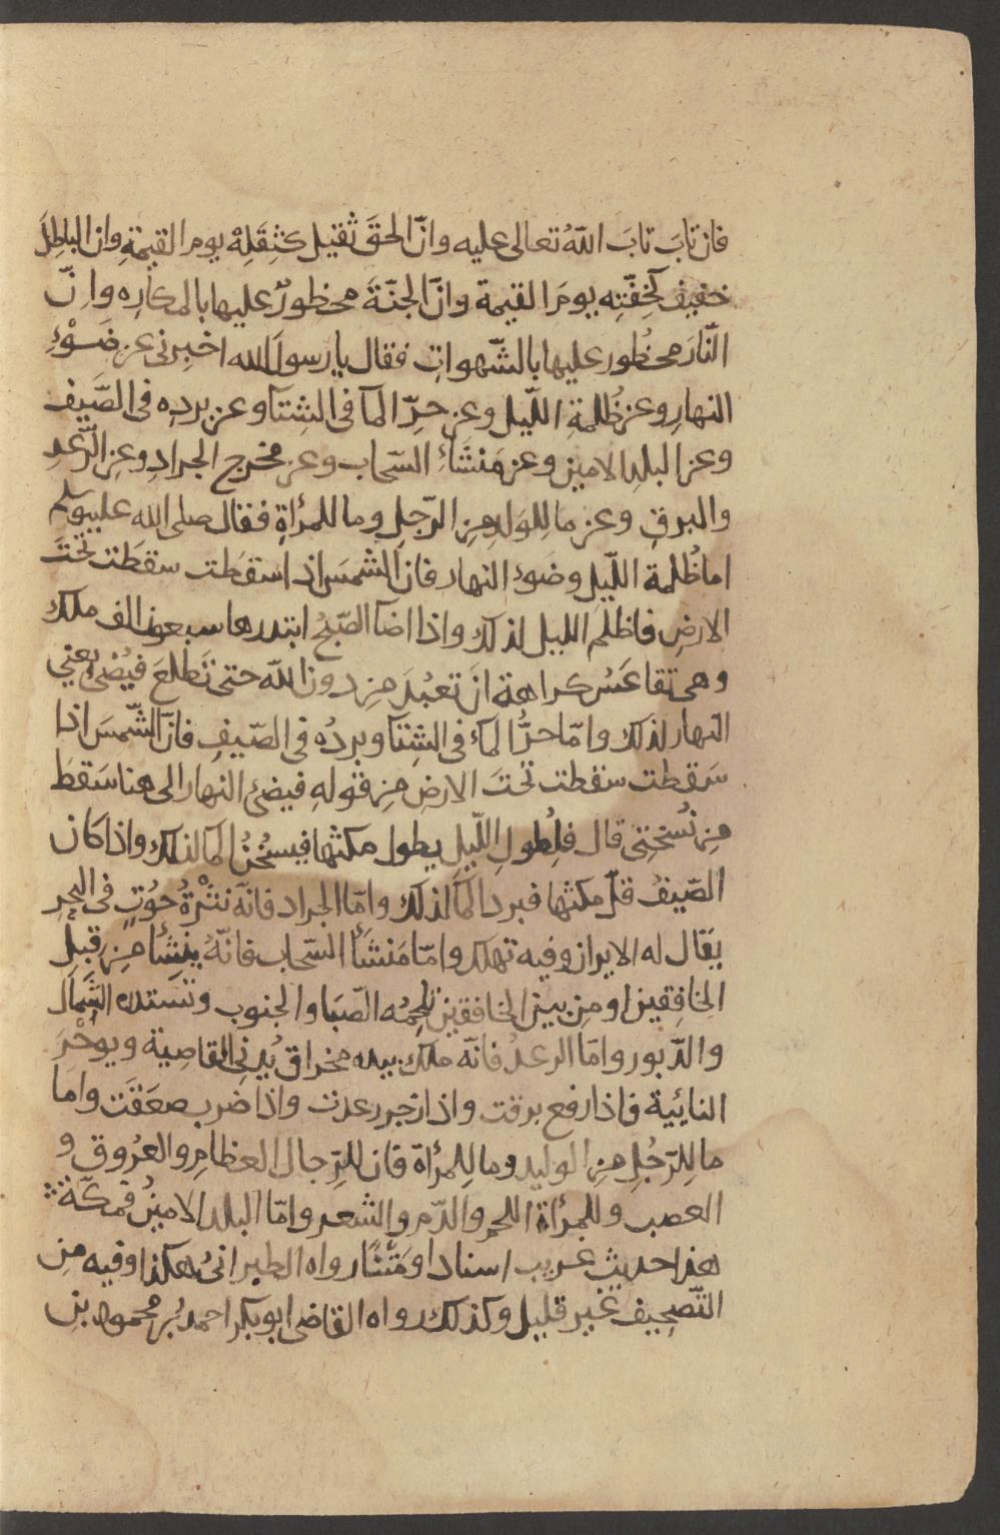 فان تابَ تابَ اللهُ تعالى عليه وانّ الحقَ ثقيل كثِقَلِهْ يوم القيمةِ وان الباطِلَ
خفيف كخِفّتِه يومَ القيمة وانّ الجنّةَ محظورٌ عليها بالمكارِه واِنّ
النّارَ محظُور عليها بالشّهواتِ فقال يا رسولَ الله اخبِرنى عن ضَوْءِ
النهارِ وعن ظُلمةِ اللّيل وعن حرّ الما فى الشِتآ وعن بردِه فى الصّيف
وعن البلدِ الامين وعن مَنشَاءِ السّحاب وعن مخرج الجرادِ وعن الرّعدِ
والبرقِ وعن ما لِلوَلدِ مِن الرّجلِ وما للمرأةِ فقال صلى الله عليه وسلم
اما ظُلمة اللّيل وضوء النهار فان الشمسَ اذا سقطَت سقطَت تحتَ
الارضِ فاظلَم الليل لذلك واذا اضآ الصّبحُ ابتدرها سبعون الف ملك
وهى تقاعَسُ كراهة ان تعبُدَ مِن دون الله حتى تَطلعَ فيُضىُ يعني
النهار لذلك وامّا حرُّ الماء فى الشِتآ وبردُه فى الصّيفِ فانّ الشّمسَ اذا
سَقطت سقطت تحتَ الارضِ مِن قولهِ فيضئ النهار الى هنا سَقطَ
مِن نُسختِى قال فلِطُولِ اللّيلِ يطول مكثها فيسخُنُ الما لذلك واذا كان
الصّيفُ قلّ مكثها فبرد الما لذلك وامّا الجراد فانّه نثْرةُ حُوتٍ فى البحرِ
يقال له الايراز وفيه تهلك وامّا مَنشَأ السّحاب فانّهُ ينشَأ مِن قِبلِ
الخافِقين او مِن بين الخافقين تلحِمُه الصّبَا والجنوب وتستده الشَّمال
والدّبور وامّا الرعدُ فانّه ملك بيده مخراق يُدنِى القاصِية ويوخّرَ
النائية فاذا رفع برقت واذا زجر رعدت واذا ضرب صعَقت واما
ما لِلرّجُلِ مِن الوليد وما لِلمرأة فان للرّجال العظامِ والعرُوق و
العصب وللمرأة اللحم والدّم والشعر وامّا البلد الامينُ فمكّةُ
هذا حديث غريب اسنادا ومَتْنًا رواه الطبرانىُ هكذا وفيه مِن
التّصحِيف غير قليل وكذلك رواه القاضى ابو بكر احمد بْن محمود بن